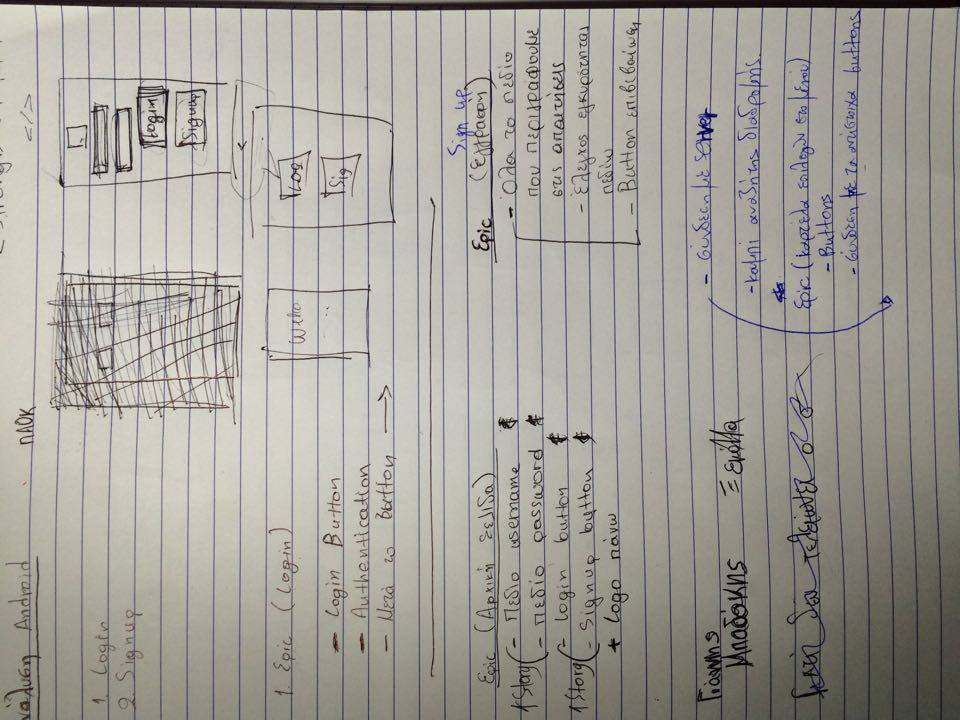 νάλυση Android
ΠΑΟΚ
1. Login
2. Signup
Login
Signup
</>
1. Epic (Login)
- Login Button
- Authentication
- Μετά το Button →
Log
Sig
Epic (Αρχική Σελίδα)
1 Story (- Πεδίο username *
- Πεδίο password *
1 Story (- Login button *
- Signup button *
+ Logo πάνω
Sign up
Epic (Εγγραφή)
- Όλα τα πεδία
που περιγράφουμε
στις απαιτήσεις
- έλεγχος εγκυρότητας
πεδίων
- Button επιβεβαίωσης
Γιάννης
- σύνδεση με server
- κουμπί αναζήτησης διαδρομής.
* Epic (καρτέλα επιλογών στο μενού)
- Buttons
- σύνδεση με τα αντίστοιχα buttons